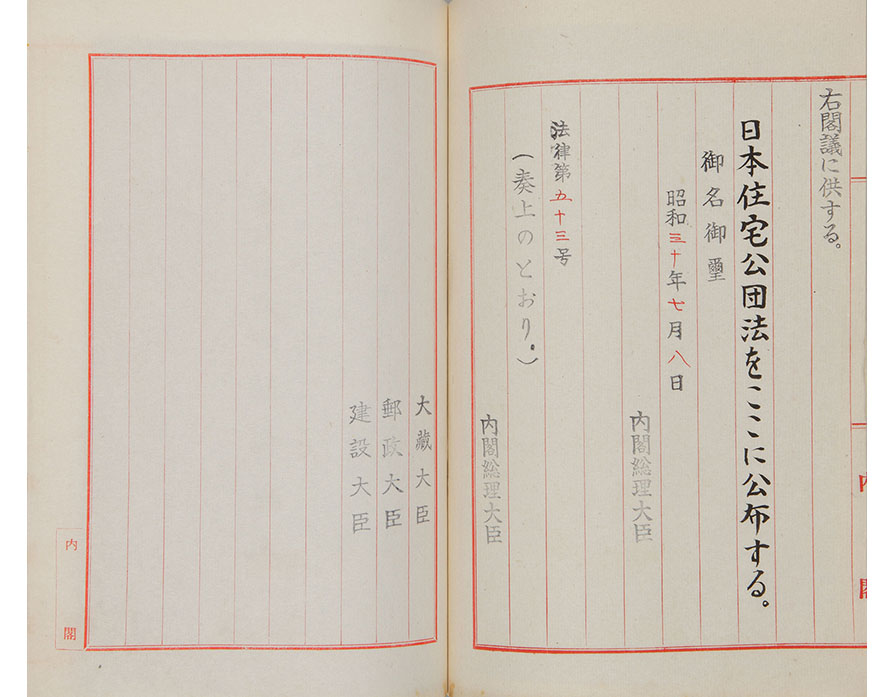 右閣議に供する。
日本住宅公団法をここに公布する。
御名御璽
昭和三十年七月八日
内閣総理大臣
法律第五十三号
（奏上のとおり。）
内閣総理大臣
大藏大臣
郵政大臣
建設大臣
内閣
内閣